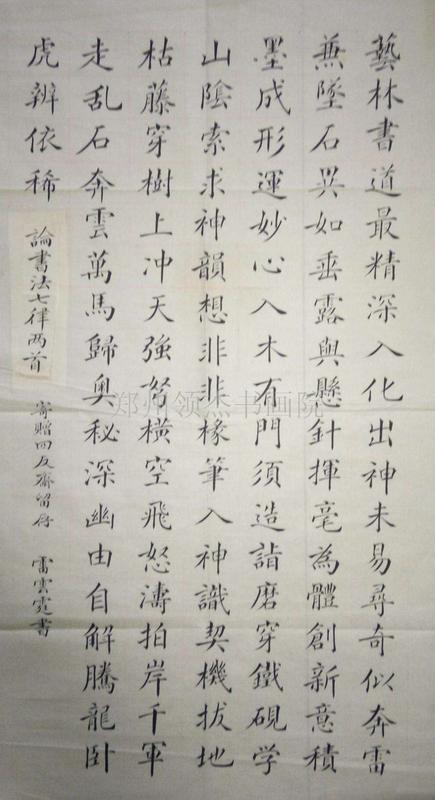 藝林書道最精深入化出神未易尋奇似奔雷
兼墜石異如垂露與懸針揮毫為體創新意積
墨成形運妙心入木有門須造詣磨穿鐵硯学
山陰索求神韻想非非椽筆入神識契機拔地
枯藤穿樹上冲天強弩橫空飛怒濤拍岸千軍
走乱石奔雲萬馬歸奥秘深幽由自解騰龍卧
虎辨依稀
論書法七律两首
寄贈四友齋留存
雷雲霓書
郑州领杰书画院